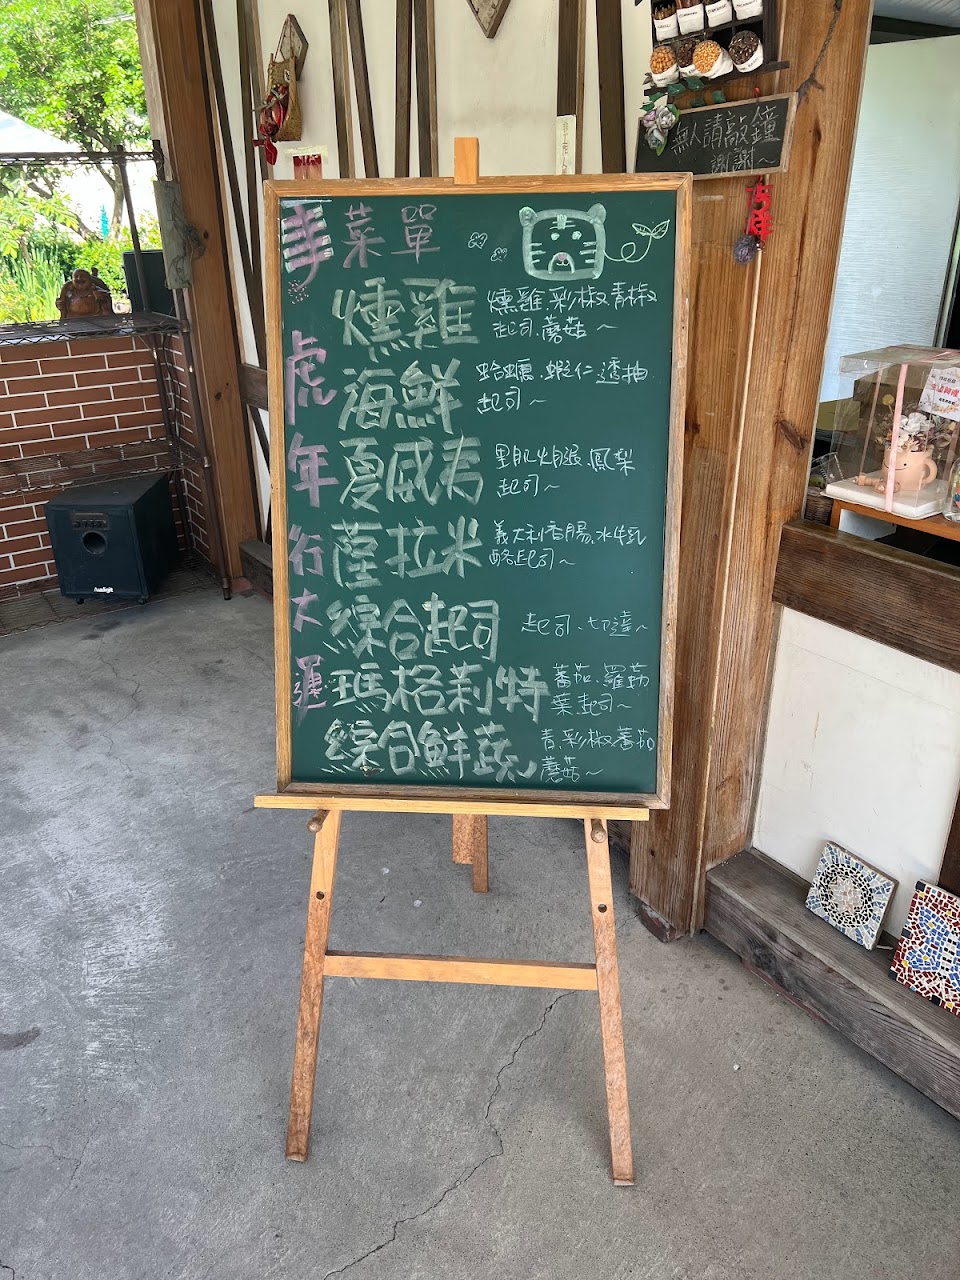 無人請敲鐘
謝謝~
菜單
虎年行大運
燻雞
燻雞.彩椒青椒
起司.蘑菇~
海鮮
蛤蠣.蝦仁.透抽
起司~
夏威夷
里肌火腿.鳳梨
起司~
薩拉米
義大利香腸.水牛乳
酪起司~
綜合起司
起司、切達~
瑪格莉特
蕃茄.羅勒
葉.起司~
綜合鮮蔬
青.彩椒蕃茄
蘑菇~
Audigit